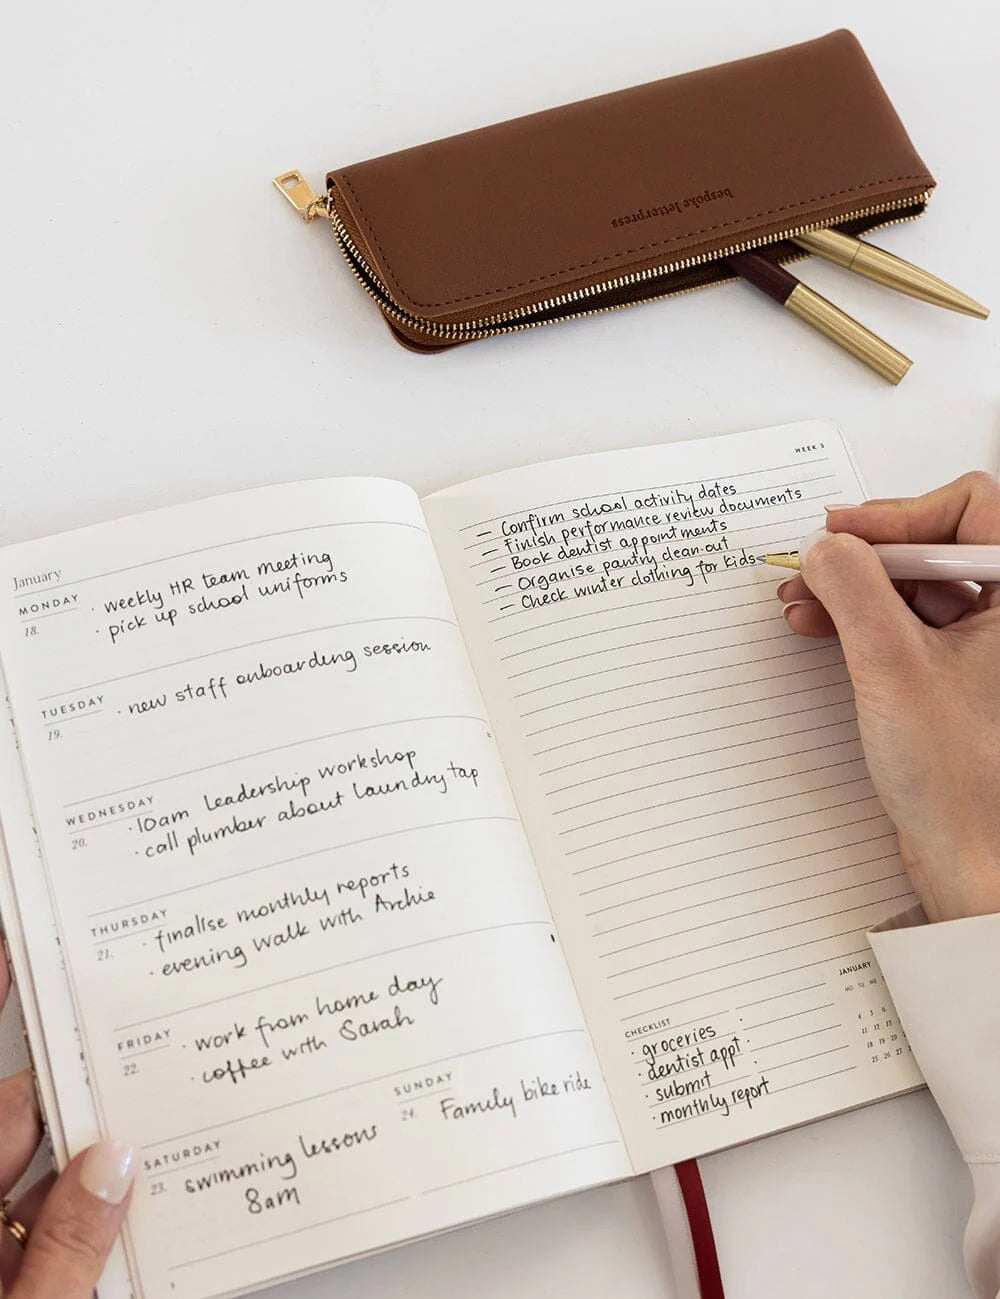 bespoke letterpress
January
MONDAY
18.
· weekly HR team meeting
· pick up school uniforms
TUESDAY
19.
· new staff onboarding session
WEDNESDAY
20.
· 10am Leadership workshop
· call plumber about laundry tap
THURSDAY
21.
· finalise monthly reports
· evening walk with Archie
FRIDAY
22.
· work from home day
· coffee with Sarah
SATURDAY
23.
swimming lessons
8am
SUNDAY
24.
Family bike ride
WEEK 3
— Confirm school activity dates
— Finish performance review documents
— Book dentist appointments
— Organise pantry clean-out
— Check winter clothing for kids
CHECKLIST
· groceries
· dentist appt
· submit
· monthly report
JANUARY
MO TU WE
4 5 6
11 12 13
18 19 20
25 26 27